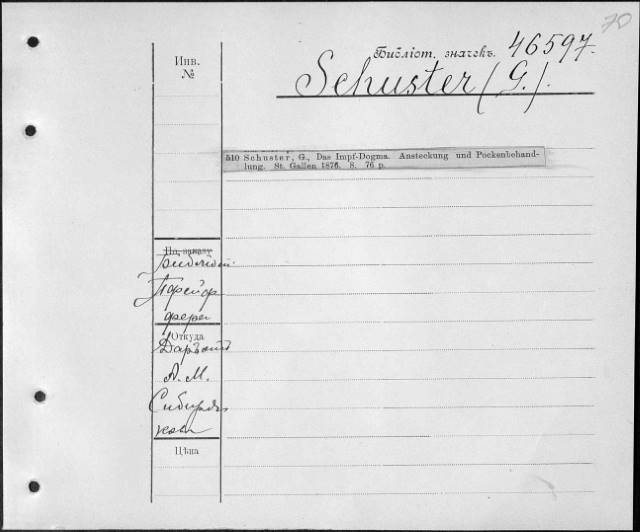 70
Инв.
№
Библіот. значекъ. 46597.
Schuster (G.).
510 Schuster, G., Das Impf-Dogma. Ansteckung und Pockenbehand-
lung. St. Gallen 1876. 8. 76 p.
По заказу
Библіот.
Пфейф
фера
Откуда
Даръ отъ
А. М.
Сибиряко
ва
Цѣна